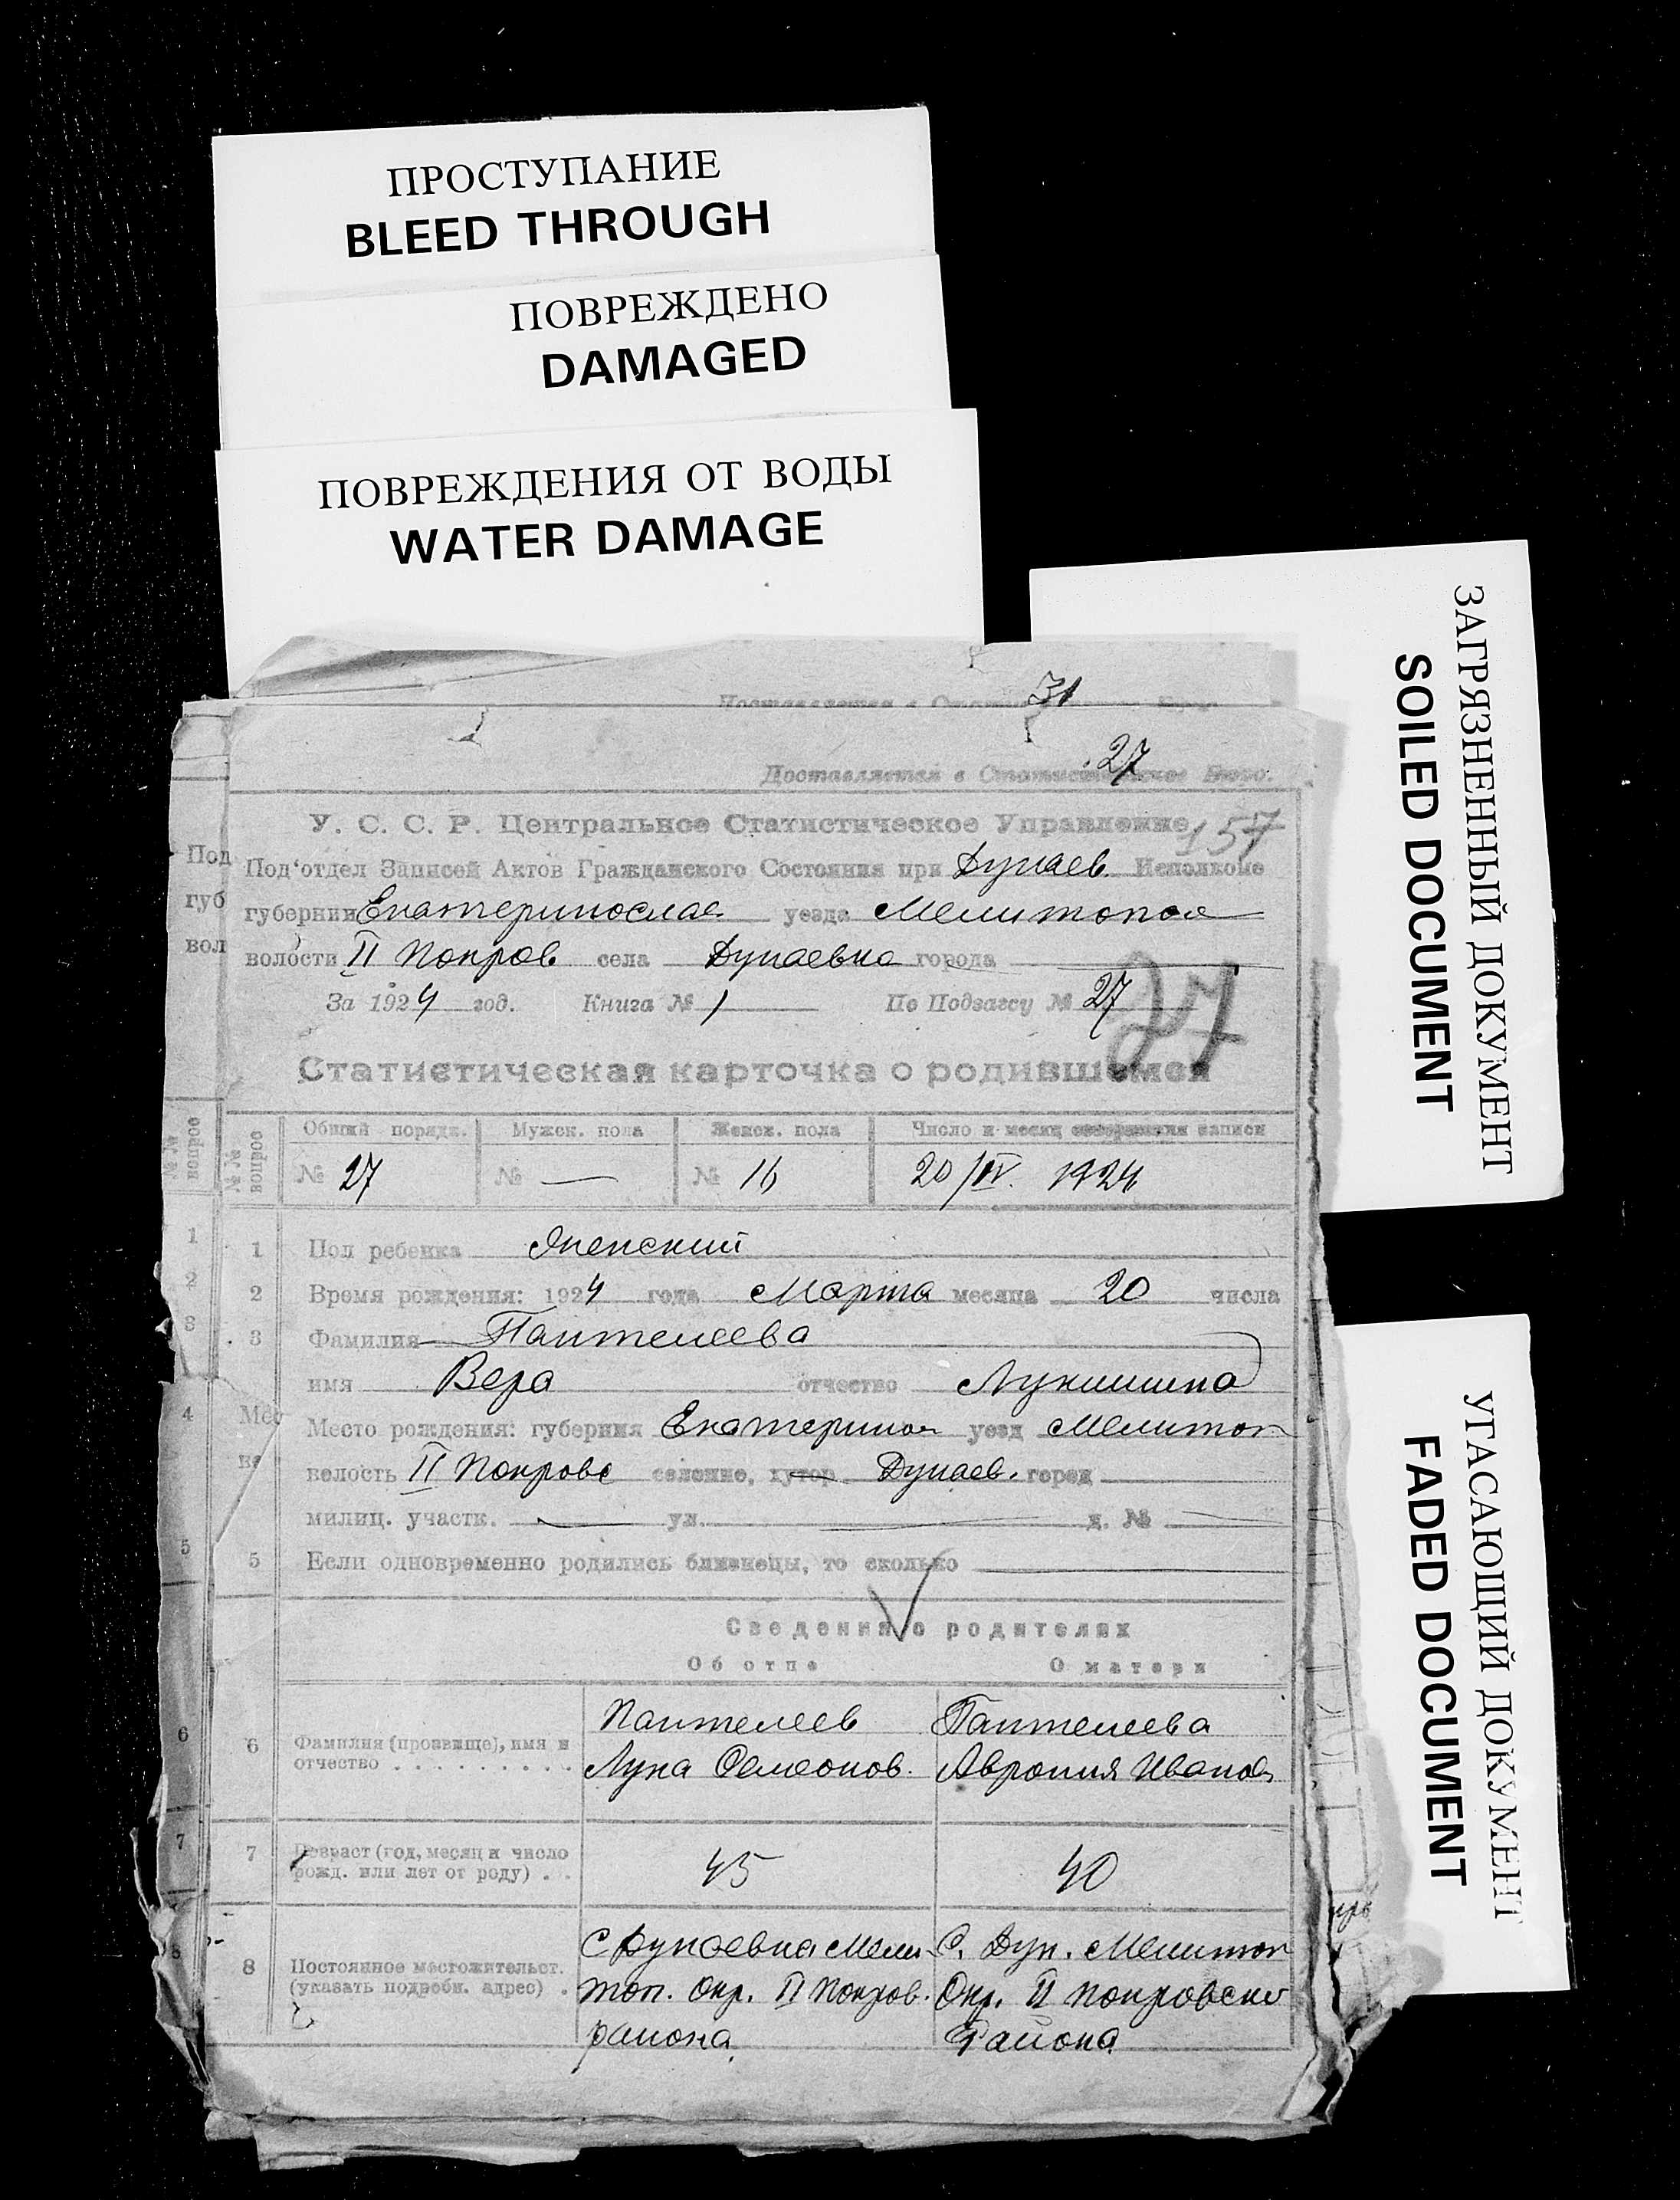 ПРОСТУПАНИЕ
BLEED THROUGH
ПОВРЕЖДЕНО
DAMAGED
ПОВРЕЖДЕНИЯ ОТ ВОДЫ
WATER DAMAGE
ЗАГРЯЗНЕННЫЙ ДОКУМЕНТ
SOILED DOCUMENT
УГАСАЮЩИЙ ДОКУМЕНТ
FADED DOCUMENT
31
27
Доставляется в Статистическое Бюро.
У. С. С. Р. Центральное Статистическое Управление
157
Под'отдел Записей Актов Гражданского Состояния при Дунаев. Исполкоме
губернии Екатеринослав уезда Мелитопол
волости II Покров села Дунаевка города
За 1924 год. Книга № 1 По Подзагсу № 27
27
Статистическая карточка о родившемся
№№ вопрос
Общий порядк. Мужск. пола Женск. пола Число и месяц совершения записи
№ 27 № — № 16 20/IV. 1924
1 Пол ребенка женский
2 Время рождения: 1924 года Марта месяца 20 числа
3 Фамилия Пантелеева
имя Вера отчество Лукинична
Место рождения: губерния Екатеринос уезд Мелитоп
волость II Покровс селение, хутор Дунаев. город
милиц. участк. — ул. — д. № —
5 Если одновременно родились близнецы, то сколько
Сведения о родителях
Об отце О матери
6 Фамилия (прозвище), имя и отчество
Пантелеев Пантелеева
Лука Семионов. Аврония Иванов
7 Возраст (год, месяц и число рожд. или лет от роду)
45 40
8 Постоянное местожительст. (указать подробн. адрес)
С Дунаевка Мели- С. Дун. Мелитоп
топ. Окр. II Покров. Окр. II Покровско
района. Района
Под
губ
вол
№№ вопрос
1
2
3
4 Мес
5
6
7
8